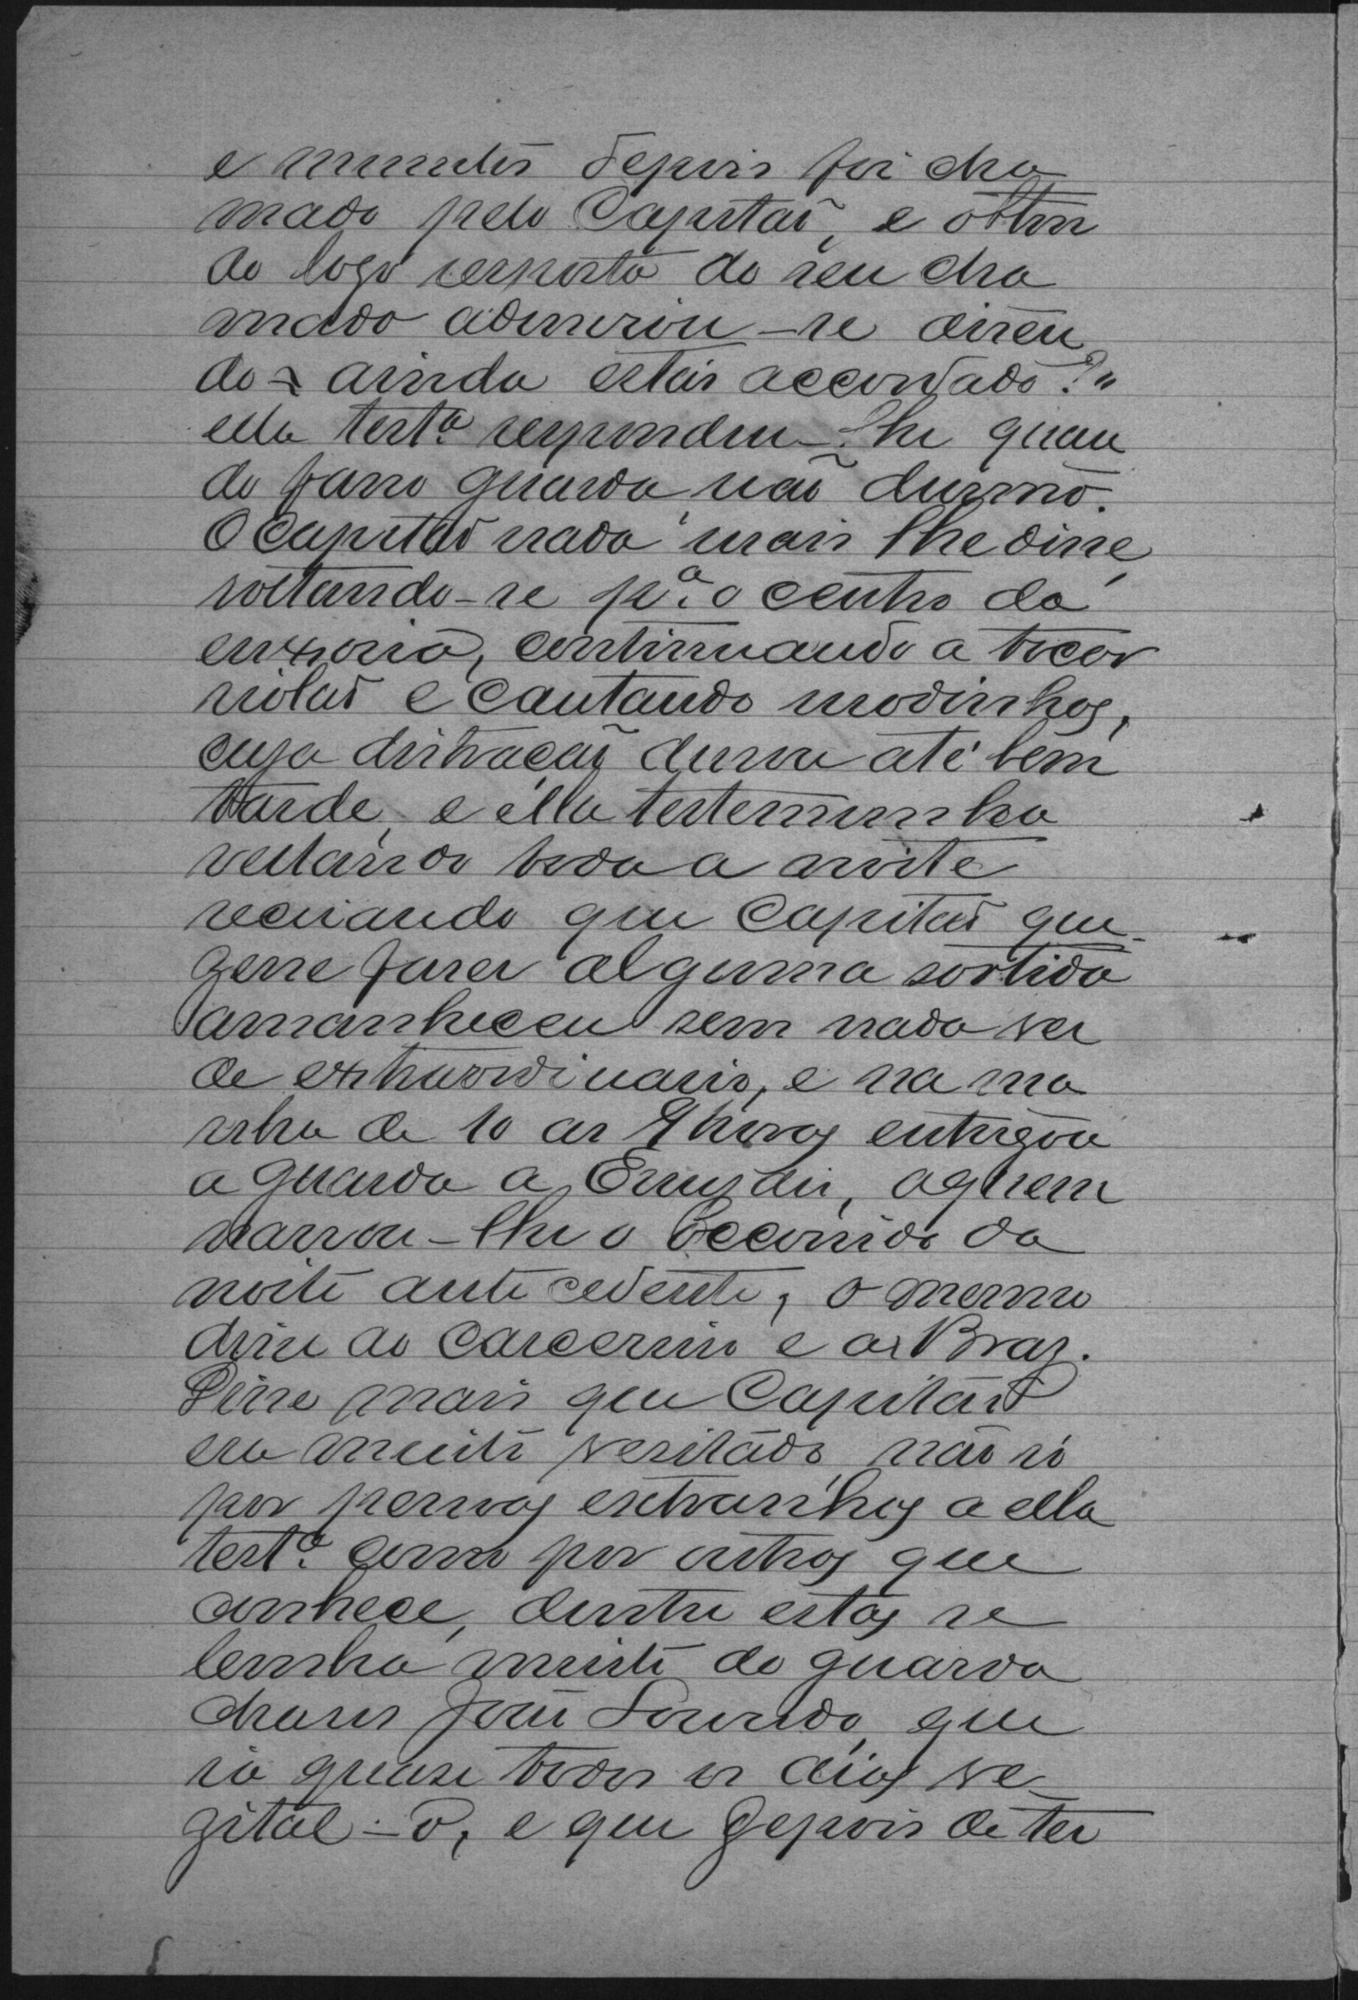 e minutos depois foi cha
mado pelo Capitaõ, e obten
do logo resposta do seu cha
mado admirou-se disen
do - ainda estás accordado?"
ella test.ª respondeu-lhe quan
do faço guarda naõ durmo.
O Capitaõ nada mais lhe disse,
voltando-se p.ª o centro da
enxovia, continuando a tocar
violaõ e cantando modinhas,
cuja distraçaõ durou até bem
tarde, e ella testemunha
vellando toda a noite
receiando que Capitaõ qui-
zesse faser alguma sortida
amanheceu sem nada ver
de extraordinario, e na ma
nha de 10 as 9 horas entregou
a guarda a, a quem
narrou-lhe o occorrido da
noite antecedente, o mesmo
disse ao Carcereiro e a Braz.
Disse mais que Capitaõ
era muito vesitado, não só
por pessoas extranhas a ella
test.ª como por outras que
conhece, dentre estas se
lembra muito do guarda
chaves João Lourenço, que
ia quase todos os dias ve
zital-o, e que depois de ter